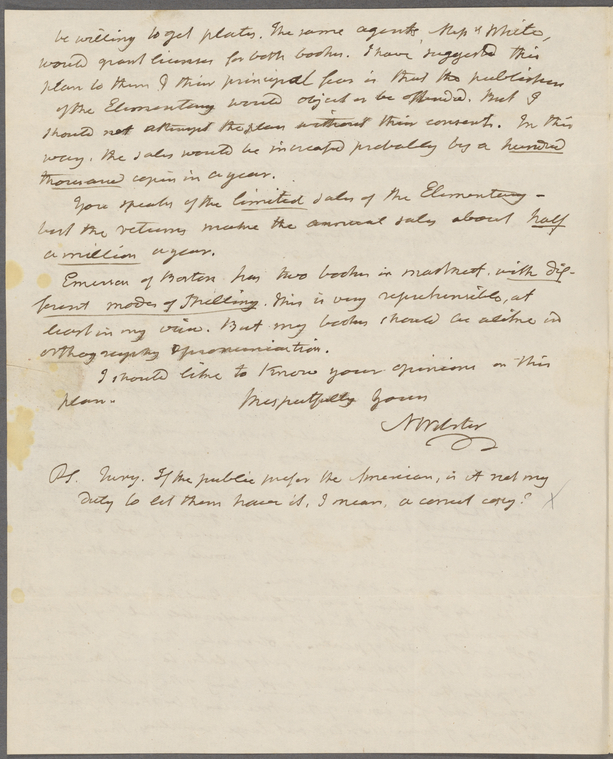 be willing to get plates. The same agents, Mess.rs White,
would grant licenses for both books. I have suggested this
plan to them & their principal fear is that the publishers
of the Elementary would object or be offended. But I
should not attempt the plan without their consents. In this
way, the sales would be increased probably by a hundred
thousand copies in a year.
You speake of the limited sales of the Elementary -
but the returns make the annual sales about half
a million a year.
Emerson of Boston has two books in market, with dif-
ferent modes of Spelling. This is very reprehensible, at
least in my view. But my books should be alike in
orthography & pronunciation.
I should like to know your opinions on this
plan.
Respectfully Yours
N Webster
PS. Query. If the public prefer the American, is it not my
duty to let them have it, I mean, a correct copy?